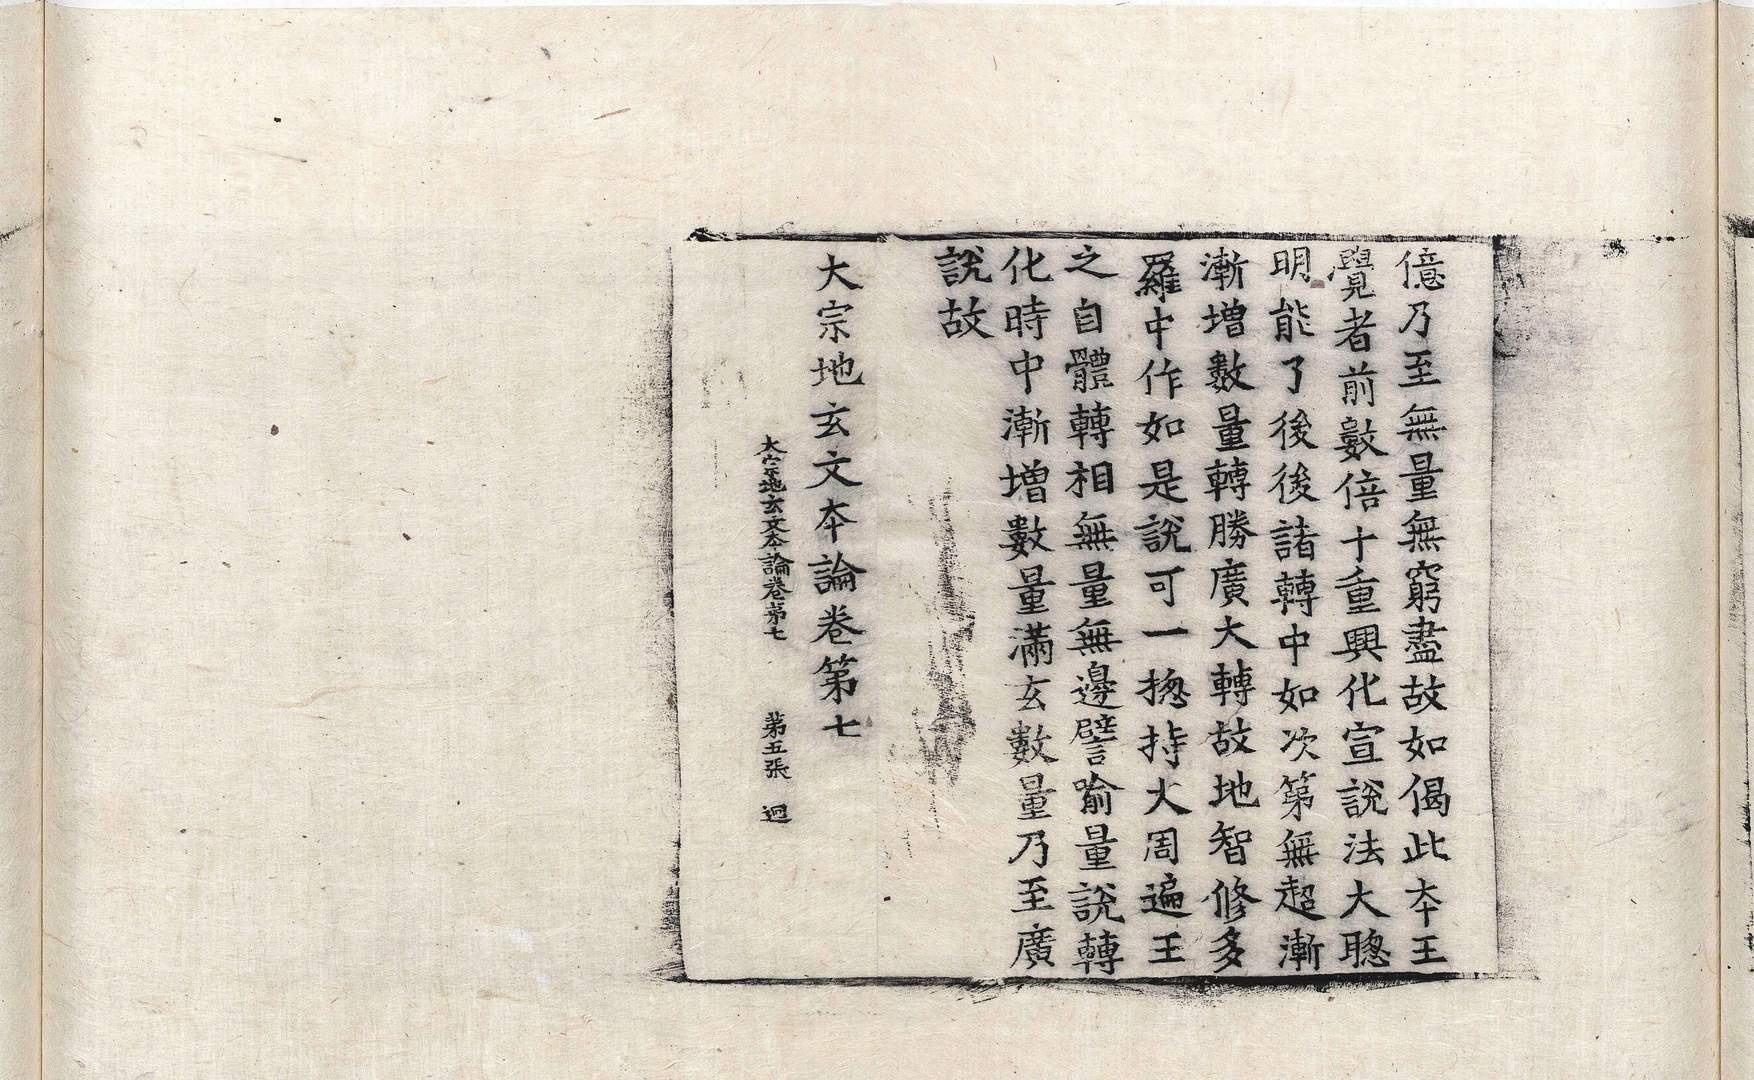 億乃至無量無窮盡故如偈此本王
覺者前數倍十重興化宣說法大聰
明能了後後諸轉中如次第無超漸
漸增數量轉勝廣大轉故地智修多
羅中作如是說可一揔持大周遍王
之自體轉相無量無邊譬喻量說轉
化時中漸增數量滿玄數量乃至廣
說故
大宗地玄文本論卷第七
大宗地玄文本論卷第七 第五張 迴